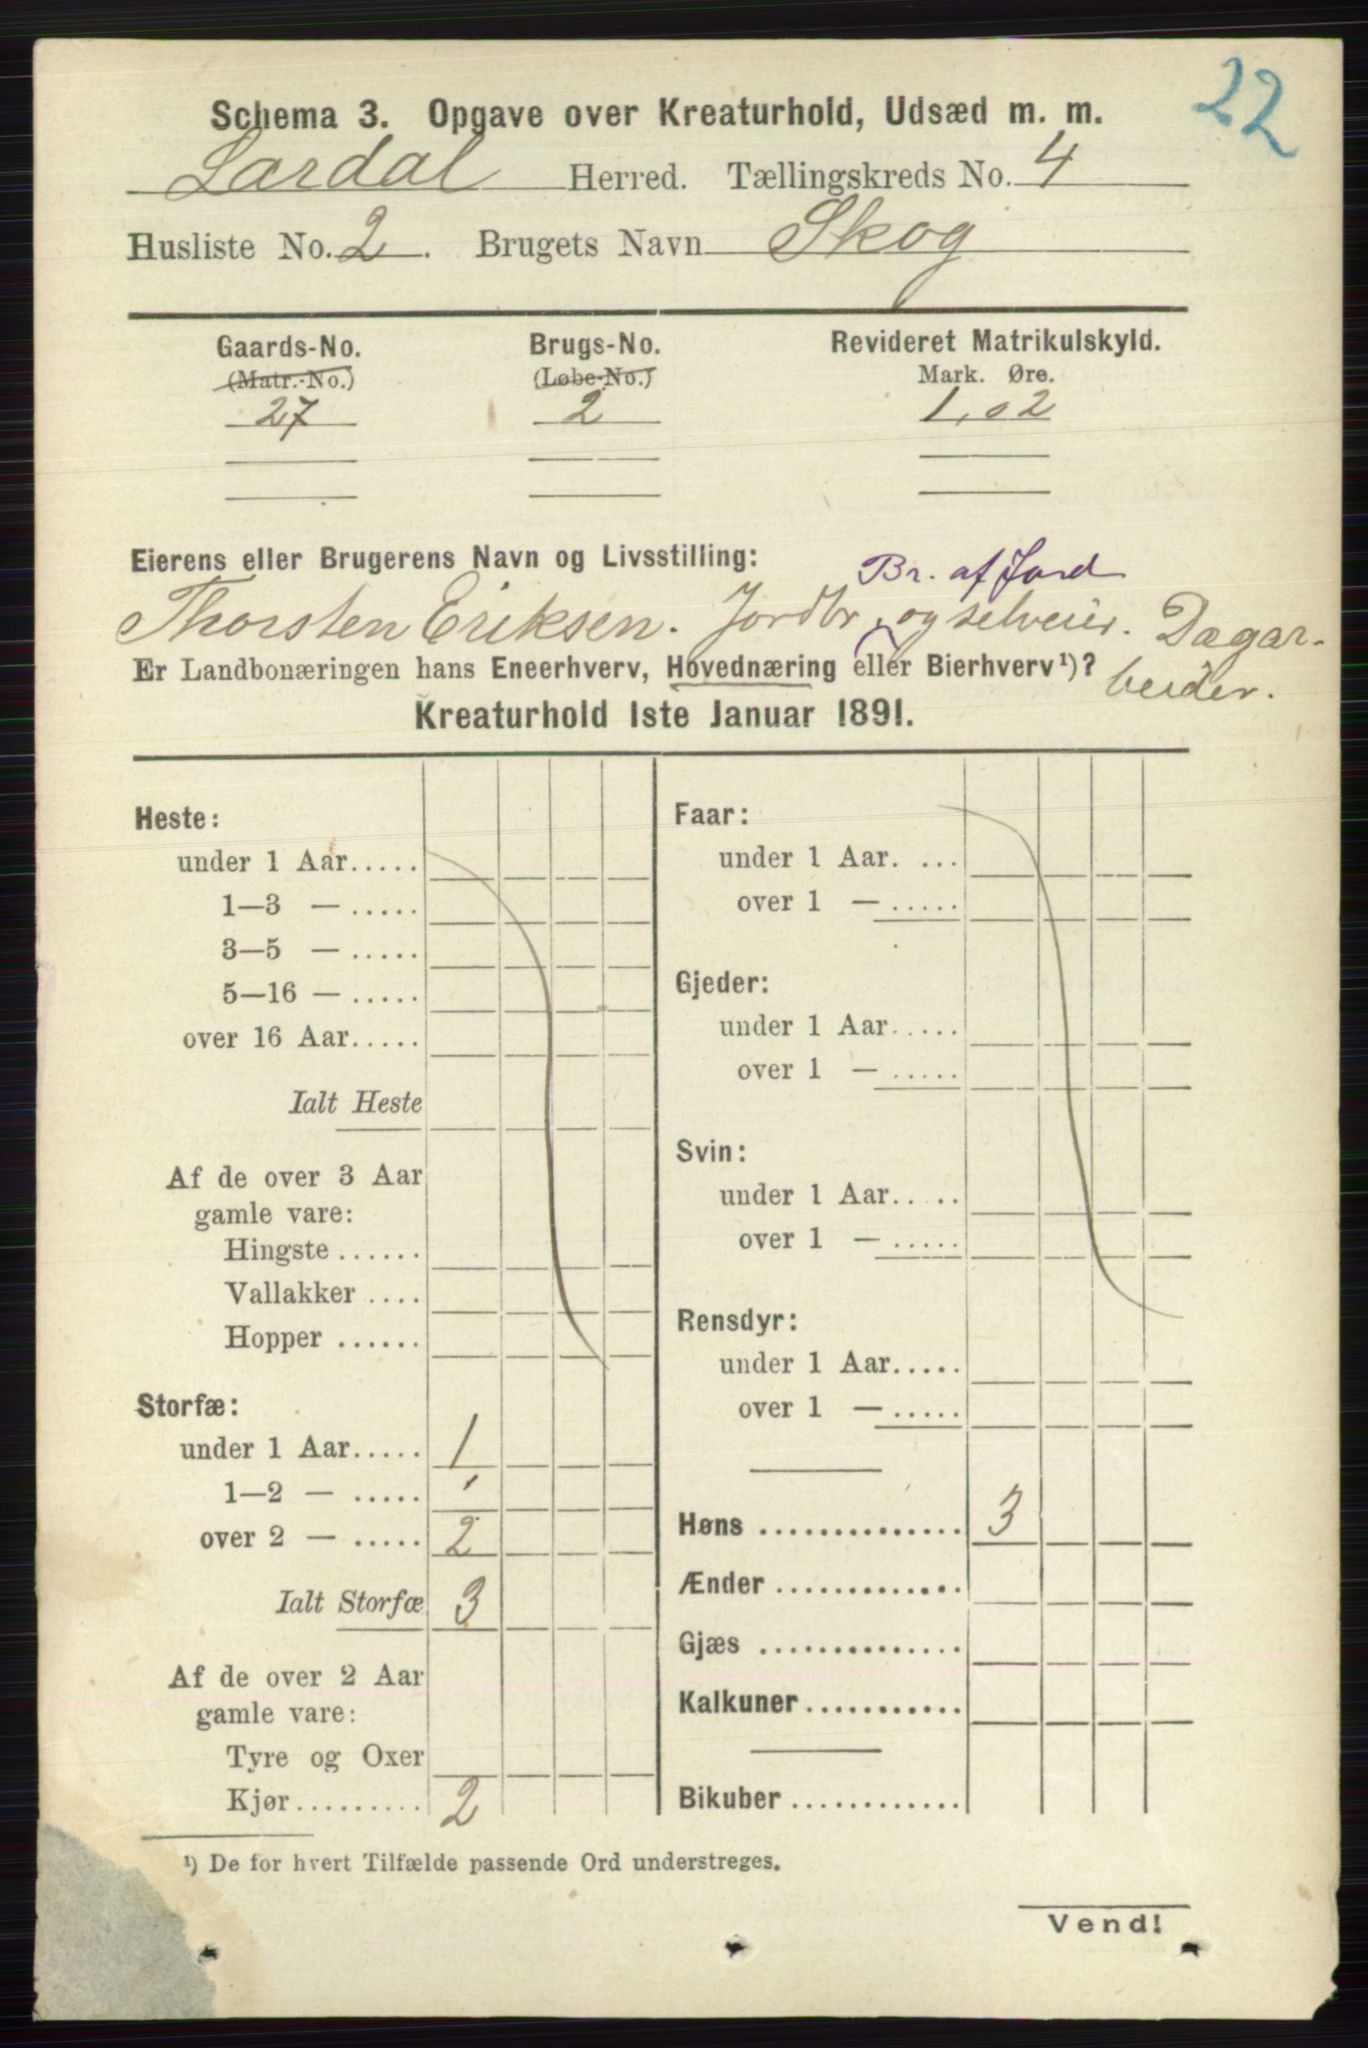 22
Schema 3. Opgave over Kreaturhold, Udsæd m. m.
Lardal Herred. Tællingskreds No. 4
Husliste No. 2. Brugets Navn Skog
Gaards-No. Brugs-No. Revideret Matrikulskyld.
(Matr.-No.) (Løbe-No.) Mark. Øre.
27 2 1,02
Eierens eller Brugerens Navn og Livsstilling:
Br. af Jord
Thorsten Eriksen. Jordbr. og selveier. Dagar-
beider.
Er Landbonæringen hans Eneerhverv, Hovednæring eller Bierhverv¹)?
Kreaturhold 1ste Januar 1891.
Heste:
under 1 Aar.....
1—3 — .....
3—5 — .....
5—16 — .....
over 16 Aar.....
Ialt Heste
Af de over 3 Aar
gamle vare:
Hingste ......
Vallakker ....
Hopper ......
Storfæ:
under 1 Aar..... 1
1—2 — .....
over 2 — ..... 2
Ialt Storfæ 3
Af de over 2 Aar
gamle vare:
Tyre og Oxer
Kjør......... 2
Faar:
under 1 Aar. ...
over 1 — .....
Gjeder:
under 1 Aar.....
over 1 — .....
Svin:
under 1 Aar.....
over 1 — .....
Rensdyr:
under 1 Aar.....
over 1 — .....
Høns .............. 3
Ænder .............
Gjæs ..............
Kalkuner ...........
Bikuber ............
¹) De for hvert Tilfælde passende Ord understreges.
Vend!